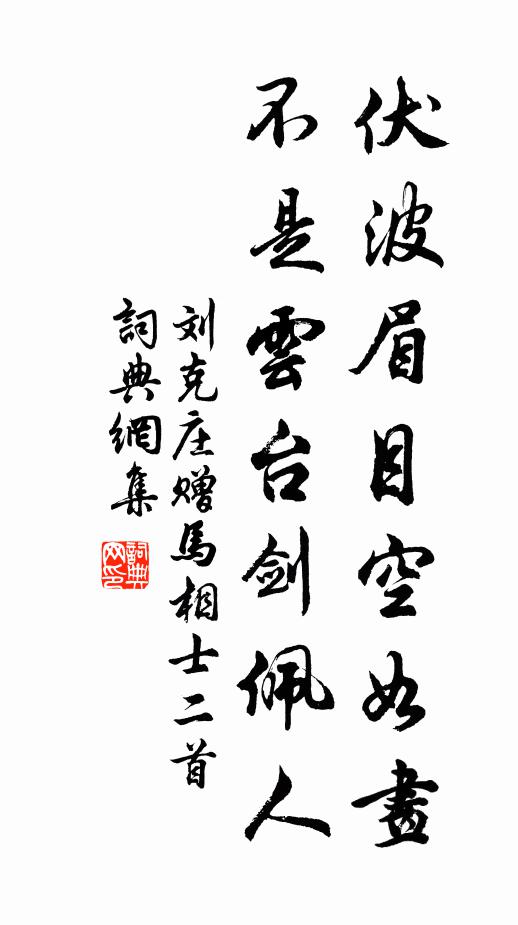 伏波眉目空如畫
不是雲台劍佩人
刘克庄赠馬相士二首
詞典網集
詞典网印